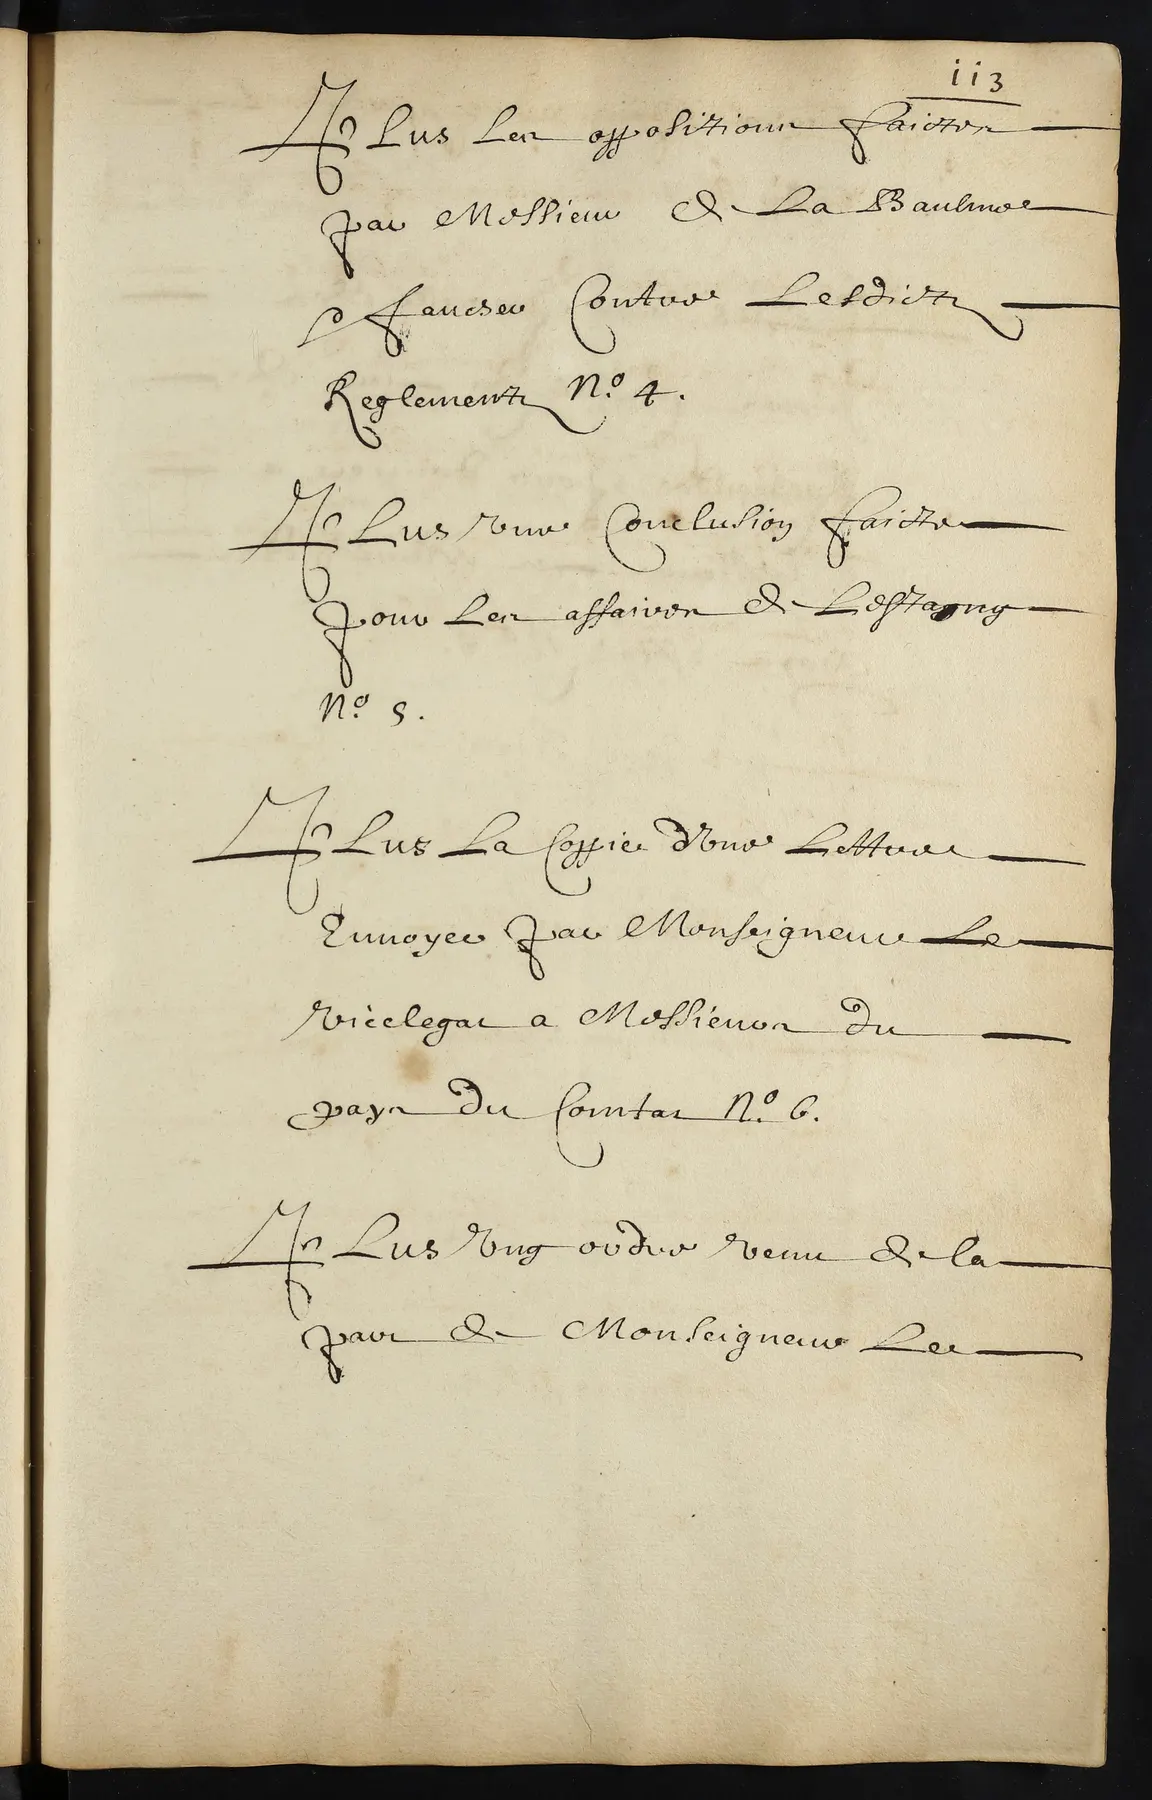 113
Plus les oppositions faictes
par Messieur de La Baulme
& faucher Contre Lesdictz
Reglementz N.o 4.
Plus vne Conclusion faicte
pour les affaires de Lestagny
N.o 5.
Plus La Coppie d'vne Lettre
Enuoyee par Monseigneur Le
vicelegat a Messieurs du
pays du Comtat N.o 6.
Plus vng ordre venu de la
part de Monseigneur Le